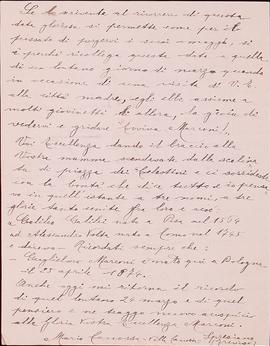 Lo scrivente al ricorrere di questa
data gloriosa si permette come per il
passato di porgervi i suoi omaggi, si
è perché ricollega questa data a quella
di un lontano giorno di marzo quando
in occasione di una visita di V. E.
alla città madre, egli ebbe assieme a
molti giovinetti di allora, la gioia di
vedervi e gridare Evviva Marconi!
Voi Eccellenza dando il braccio alla
Vostra mamma scendevate dalla scalina
di piazza dei Celestini e ci sorrideste
con la bontà che dice tutto e io pensa
vo in quell'istante a tre nomi, a tre
glorie tanto sentite fra loro e cioè
a Galileo Galilei nato a Pisa nel 1564
ad Alessandro Volta nato a Como nel 1745
e dicevo - Ricordati sempre che:
Guglielmo Marconi è nato qui a Bologna
il 25 aprile 1874.
Anche oggi mi ritorna il ricordo
di quel lontano 24 marzo e di quel
pensiero e ne traggo nuovo auspicio
alla gloria Vostra Eccellenza Marconi.
Mario